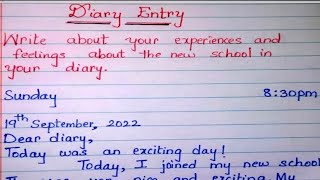 Diary Entry
Write about your experiences and
feelings about the new school in
your diary.
Sunday 8:30pm
19th September, 2022
Dear diary,
Today was an exciting day!
Today, I joined my new school
and exciting. My